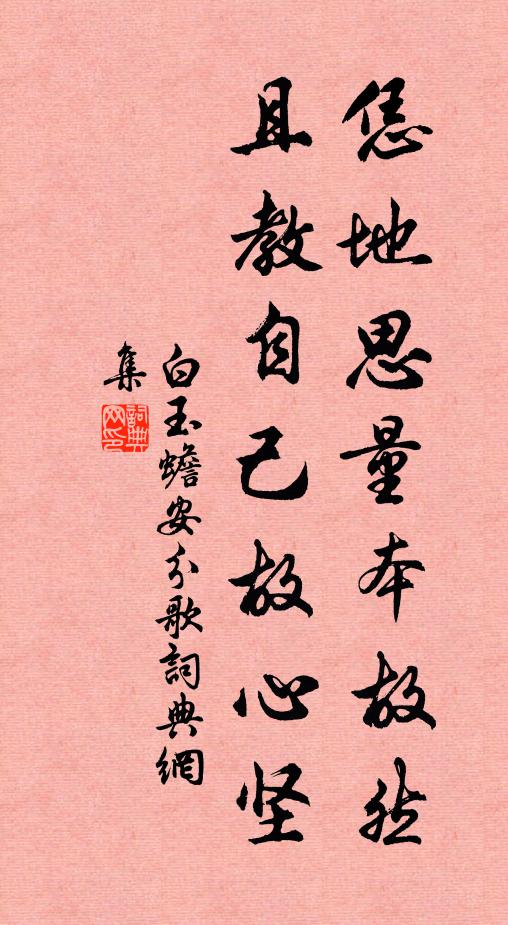 恁地思量本故然
且教自己故心坚
白玉蟾安分歌詞典網
集
詞典网印